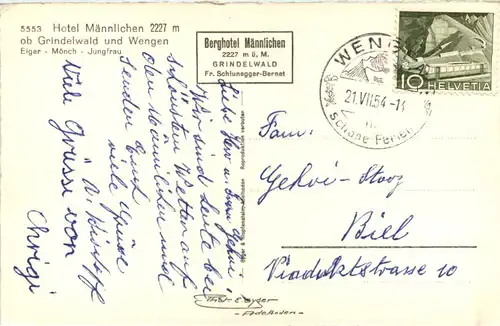 5553 Hotel Männlichen 2227 m
ob Grindelwald und Wengen
Eiger - Mönch - Jungfrau
Berghotel Männlichen
2227 m ü. M.
GRINDELWALD
Fr. Schlunegger-Bernet
WENGEN
21.VII.54-14
Schöne Ferien
10 HELVETIA
Liebe Herr u. Frau Gehri!
Wir sind heute bei
schönstem Wetter auf
dem Männlichen und
senden Euch
viele Grüsse
Viele Grüsse von
Chrigi
Fam.
Gehri-Stooz
Biel
Viaduktstrasse 10
Adelboden